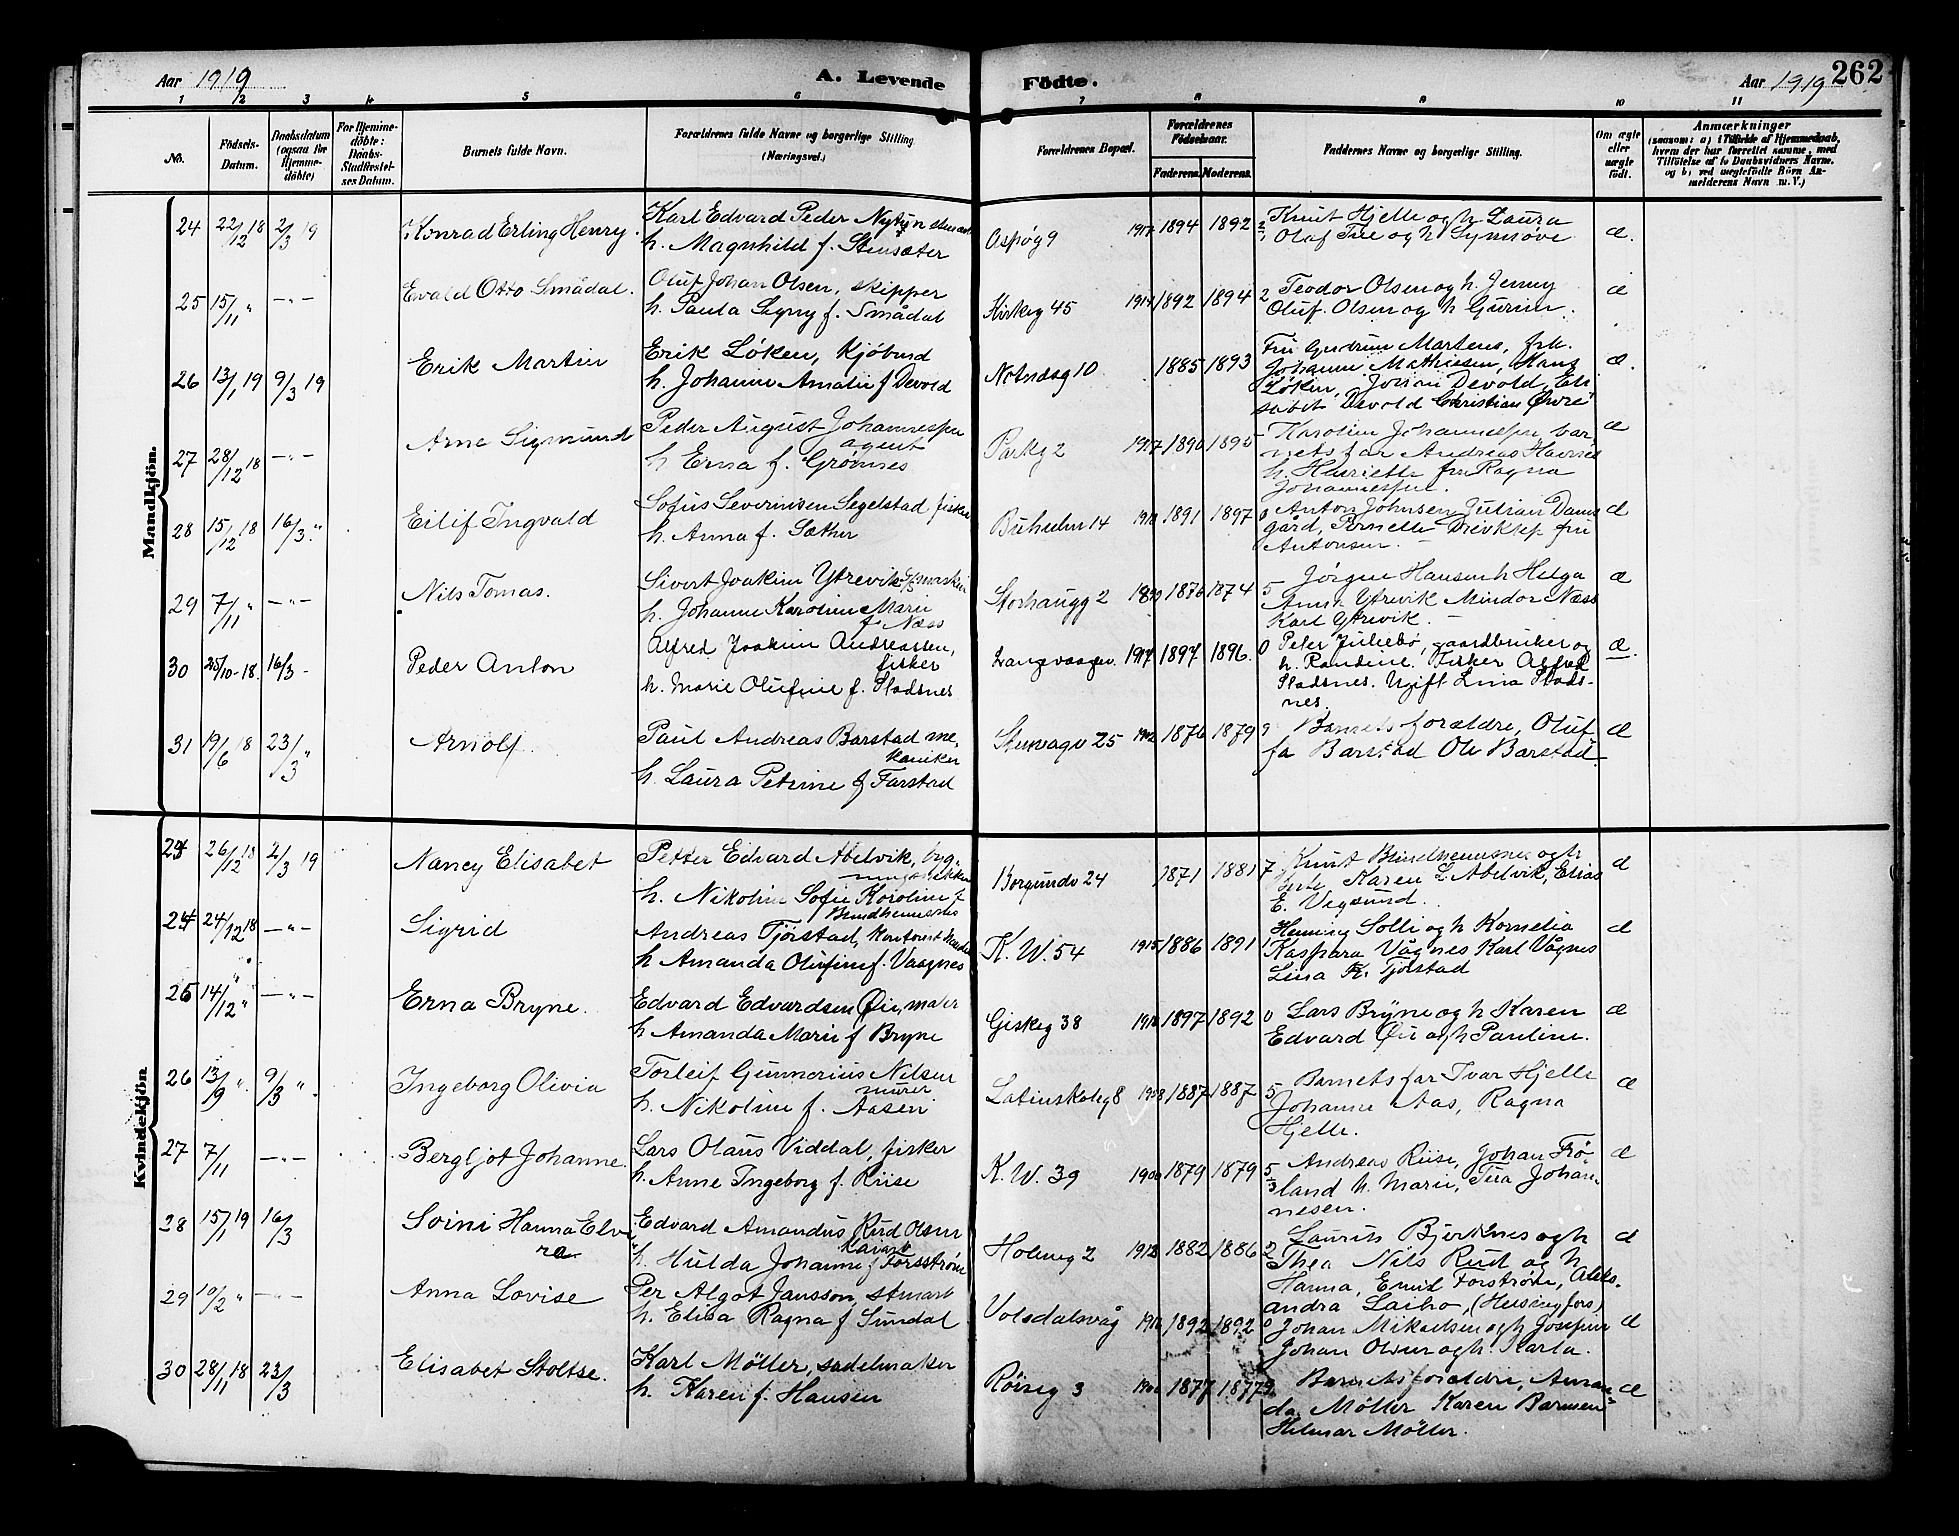 Aar 1919
A. Levende Födte.
Aar 1919
262
1 2 3 4 5 6 7 8 9 10 11
No.
Födsels-
Datum.
Daabsdatum
(ogsaa for
Hjemme-
döbte)
For Hjemme-
döbte:
Daabs-
Stadfæstel-
ses Datum.
Barnets fulde Navn.
Forældrenes fulde Navne og borgerlige Stilling
(Næringsvei.)
Forældrenes Bopæl.
Forældrenes
Födselsaar.
Faderens. Moderens.
Faddernes Navne og borgerlige Stilling.
Om ægte
eller
uægte
födt.
Anmærkninger
(saasom: a) i Tilfælde af Hjemmedaab,
hvem der har forrettet samme, med
Tilföielse af to Daabsvidners Navne.
og b) ved uægtefödte Börn An-
melderens Navn m. V.)
Mandkjön.
24 22/12 18 2/3 19 Konrad Erling Henry.
Karl Edvard Peder
h. Magnhild f. Stensæter
Aspøg 9 1894 1892
Knut Hjelle og h Laura
Olaf og h Synnøve
æ.
25 15/11 " -"- Evald Otto Smådal.
Oluf Johan Olsen, skipper
h. Paula f. Smådal
Kirkeg 45 1892 1894 2
Teodor Olsen og h. Jenny
Oluf Olsen og h Gurine.
æ
26 13/1 19 9/3 19 Erik Martin
Erik Løken, Kjøbmd
h. Johanne Amalie f Devold
Notnæsg 10 1885 1893
Fru Gudrun Martens, frk.
Johanne Mathiesen, Hans
Løken, Devold, Eli
sabet Devold Christian Øvre
æ.
27 28/12 18 -"- Arne Sigmund
Peder August Johannessen
agent
h Erna f. Grønnes
Parkg 2 1917 1890 1895
Karoline Johannessen, bar
nets far Andreas
h. Henriette fru Ragna
Johannessen.
æ
28 15/12 18 16/3 " Eilif Ingvald
Sofus Severinsen Segelstad fisker
h. Anna f. Sæther
Buholm 14 1918 1891 1897 0
Anton Johnsen Julian Dams
gård, Pernelle fru
Antonsen. -
æ
29 7/11 " -"- Nils Tomas.
Sivert Joakim Ytrevik
h. Johanne Karoline Marie
f. Næss
Storhaugg 2 1876 1874 5
Jørgen Hansen h Helga
Anna Ytrevik Mindor Næss
Karl Ytrevik. -
æ
30 25/10-18. 16/3- Peder Anton
Alfred Joakim Andreassen,
fisker
h. Marie Olufine f. Stadsnes
Langevaagen. 1917 1897 1896. 0
Peter Jullebø, gaardbruker og
h. Randine. Fisker Alfred
Stadsnes. Ugift Lina Stads-
nes.
æ.
31 19/6 18 23/3 " Arnolf.
Paul Andreas Barstad me,
kaniker
h. Laura Petrine f Farstad
Stenvågv 25 1902 1876 1879 9
Barnets forældre, Oluf
fa Barstad Ole Barstad.
æ
Kvindekjön
26/12 18 2/3 19 Nancy Elisabet
Petter Edvard Abelvik, byg-
h. Nikoline Sofie Karoline f
Blindheimsnes
Borgundv 24 1871 1881 7
Knut Blindheimsnes og h
Karen L. Abelvik, Elias
E. Vegsund.
æ
24 24/12 18 -"- Sigrid
Andreas Tjørstad, kontorist
h Amanda Olufine f. Vaagnes
K. W. 54 1915 1886 1891 1
Henning Solli og h Kornelia
Kaspara Vågnes Karl Vågnes
Lina K. Tjørstad
æ
25 14/12 " -"- Erna Bryne.
Edvard Edvardsen Øie, maler
h Amanda Marie f Bryne
Giskeg 38 1918 1897 1892 0
Lars Bryne og h Karen
Edvard Øie og h Pauline.
æ
26 13/9 " 9/3 " Ingeborg Olivia
Torleif Gunnerius Nilsen
murer
h. Nikoline f. Aasen
Latinskoleg 8 1908 1887 1887 5
Barnets far Ivar Hjelle
Johanne Aas, Ragna
Hjelle.
æ
27 7/11 -"- Bergljot Johanne
Lars Olaus Viddal, fisker
h. Anne Ingeborg f. Riise
K. W. 39 1900 1879 1879 5
Andreas Riise, Johan Frø
land h. Marie, Tea Johan
nesen.
æ
28 15/1 19 16/3 Soini Hanna Elvi
ra
Edvard Amandus Rud Olsen
h. Hulda Johanne f Forsstrøm
Holmeg 2 1912 1882 1886 2
Laurits Bjerknes og h
Thea Nils Rud og h
Hanna, Emil Forstrøm, Aleks.
andra Laiho, (Helsingfors)
æ
29 10/2 " -"- Anna Lovise
Per Algot Jansson stuart
h. Elisa Ragna f Sundal
Volsdalsvåg 1892 1892 0
Johan Mikaelsen og h Josefine
Johan Olsen og h. Karla.
æ
30 28/11 18 23/3 Elisabet Stoltse.
Karl Möller, sadelmaker
h. Karen f. Hansen
Røiseg 3 1877 1877 9
Barnets forældre, Aman
da Möller Karen Barmen
Helmar Möller.
æ